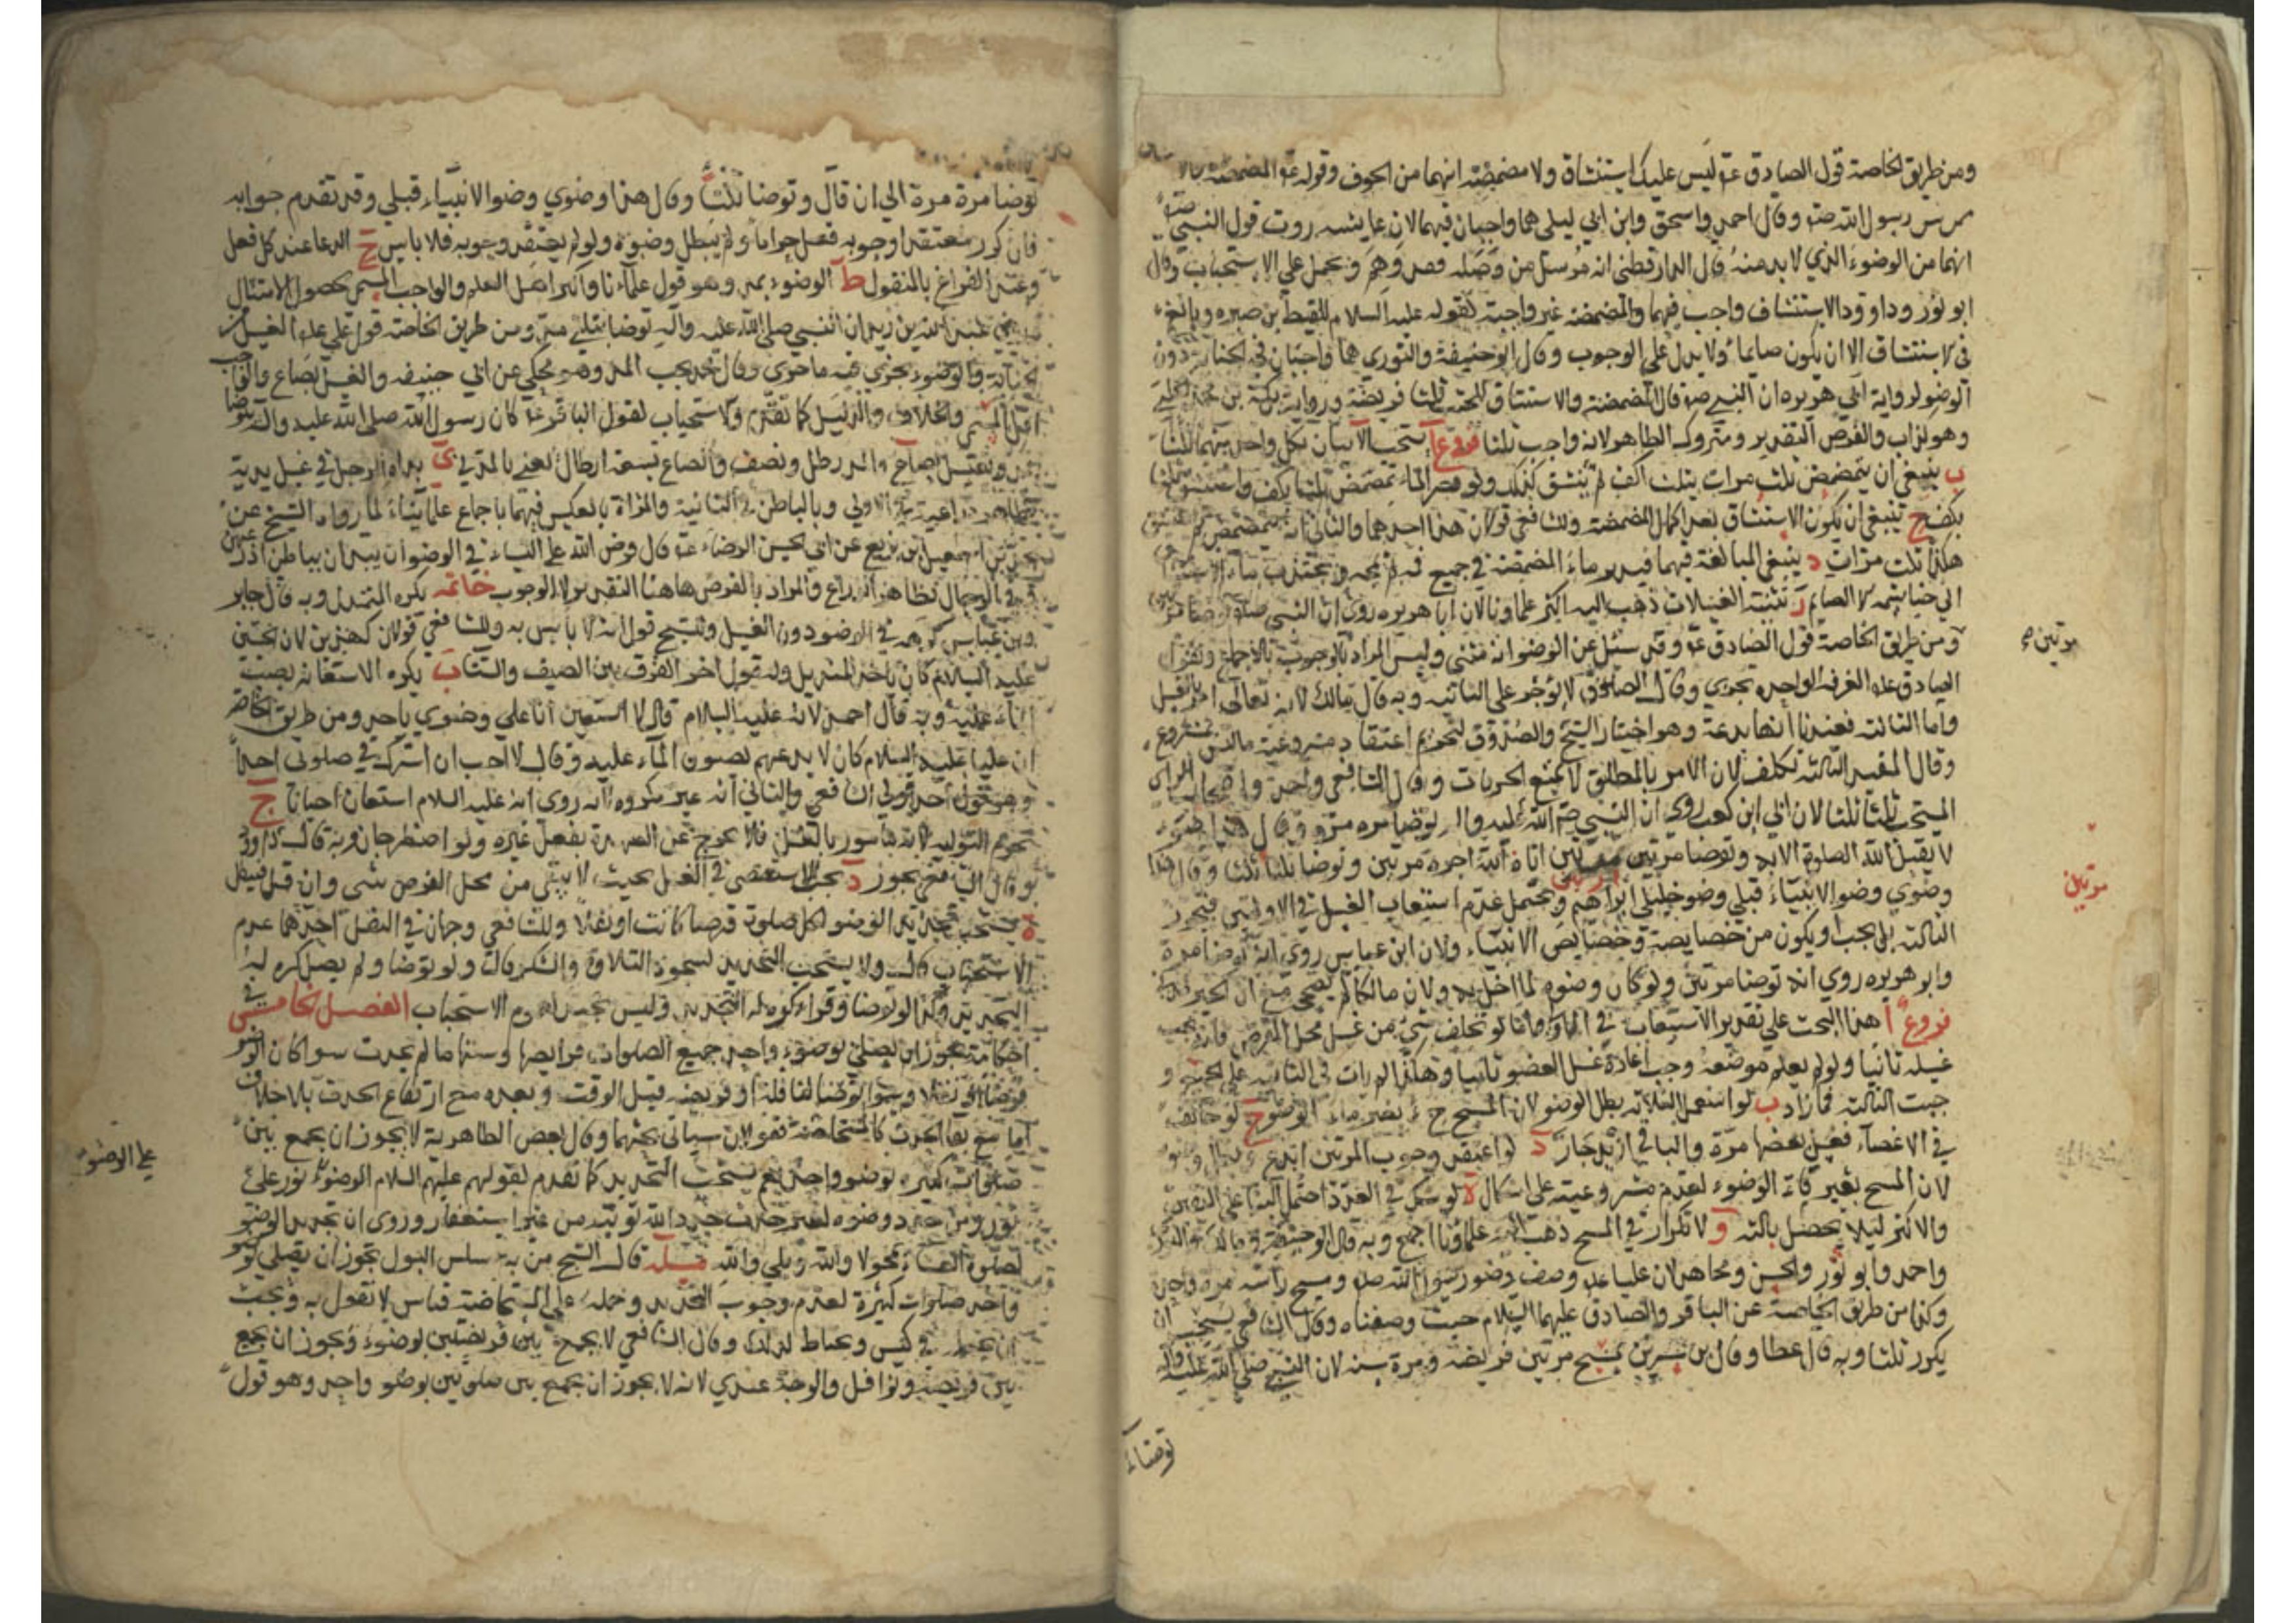 ومن طريق الخاصة قول الصادق ع ليس عليك استنشاق ولا مضمضة انهما من الجوف وقوله ع المضمضة
رسول الله ص وقال احمد واسحق وابن ابي ليلى هما واجبان فيهما لان عايشه روت قول النبي ص
انهما من الوضوء الذي لا بد منه قال الدارقطني انه مرسل من وصله فقد وهم ويحمل على الاستحباب وقال
ابو ثور وداوود الاستنشاق واجب فيهما والمضمضه غير واجبة لقوله عليه السلام للقيط بن صبره وبالغ
في الاستنشاق الا ان يكون صايما ولا يدل على الوجوب وقال ابو حنيفة والثوري هما واجبان في الجنابة دون
الوضو لرواية ابي هريره ان النبي ص قال المضمضة والاستنشاق للجنب ثلثا فريضة ورواية بركة بن محمد الحلبي
وهو كذاب والفرض التقدير ومتروك الظاهر لانه واجب ثلثا فروع ا يستحب الاتيان بكل واحد منهما ثلثا
ب ينبغي ان يتمضمض ثلث مرات بثلث اكف ثم يستنشق كذلك ولو قصر الماء تمضمض ثلثا بكف واستنشق ثلثا
بكف ج ينبغي ان يكون الاستنشاق بعد اكمال المضمضه وللشافعي قولان هذا احدهما والثاني انه يتمضمض ثم
هكذا ثلث مرات د ينبغي المبالغة فيهما فيدير ماء المضمضة في جميع فيه ثم يمجه ويجتذب ماء
الى خياشيمه الا الصايم تثنية الغسلات ذهب اليه اكثر علماونا لان ابا هريره روى ان النبي ص توضا مرتين
ومن طريق الخاصة قول الصادق ع وقد سئل عن الوضو انه مثنى وليس المراد بالوجوب بالاجماع ولقول
الصادق ع الغرفة الواحده تجزي وقال الصدوق لا يؤجر على الثانيه وبه قال مالك لانه تعالى امر بالغسل
واما الثالثه فعندنا انها بدعة وهو اختيار الشيخ والصدوق لتحريم اعتقاد مشروعية ما ليس بمشروع
وقال المفيد الثالثه تكلف لان الامر بالمطلق لا يمنع الجزيات وقال الشافعي واحمد واصحاب الراي
المستحب ثلثا ثلثا لان ابي ابن كعب روى ان النبي صلى الله عليه واله توضا مره مرة وقال هذا وضوء
لا يقبل الله الصلوة الا به وتوضا مرتين مرتين اتاه الله اجره مرتين وتوضا ثلثا ثلثا وقال هذا
وضوي وضوء الانبياء قبلي وضو خليلي ابراهيم ويحتمل عدم استيعاب الغسل في الاوليين فيجوز
الثالثه بل يجب او يكون من خصايصه وخصايص الانبياء ولان ابن عباس روى انه توضا مرة
وابو هريره روى انه توضا مرتين ولو كان وضوه لما اخل به ولان مالكا لم يصحح
فروع ا هذا البحث على تقدير الاستيعاب في الاولى اما لو تخلف شي من غسل محل الفرض فانه يجب
غسله ثانيا ولو لم يعلم موضعه وجب اعادة غسل العضو ثانيا وهل المرات في الثانيه على
جبت الثالثه فما زاد ب لو استعمل الثالثة بطل الوضو لان المسح ح بغير ماء الوضو ج لو خالف
في الاعضاء فغسل بعضها مرة والباقي ازيد جاز د لو اعتقد وجوب المرتين ابدع
لان المسح بغير ماء الوضوء لعدم مشروعيته على اشكال ه لو شك في العدد احتمل البنا على اليقين
والاكثر ليلا يحصل بالثه و لا تكرار في المسح ذهب اليه علماؤنا اجمع وبه قال ابو حنيفة ومالك والثوري
واحمد وابو ثور والحسن ومجاهد لان عليا ع وصف وضو رسول الله ص ومسح راسه مرة واحدة
وكذا من طريق الخاصة عن الباقر والصادق عليهما السلام حيث وصفناه وقال الشافعي يستحب ان
يكرر ثلثا وبه قال عطا وقال بن سيرين يمسح مرتين فريضه ومرة سنه لان النبي صلى الله عليه واله
توضا
مرتين
مرتين
توضا مرة مرة الى ان قال وتوضا ثلثا وقال هذا وضوي وضو الانبياء قبلي وقد تقدم جوابه
فان كرر معتقدا وجوبه فعل حراما ولم يبطل وضوه ولو لم يعتقد وجوبه فلا باس ح الدعا عند كل فعل
وعند الفراغ بالمنقول ط الوضوء بمد وهو قول علماءنا واكثر اهل العلم والواجب المسمى لحصول الامتثال
عبد الله بن زيد ان النبي صلى الله عليه واله توضا بثلثي مد ومن طريق الخاصه قول علي ع الغسل من
الجنابة والوضوء يجزي فيه ما جرى وقال محمد يجب المد وهو محكي عن ابي حنيفه والغسل بصاع والواجب
اقل المسمى والخلاف والدليل كما تقدم والاستحباب لقول الباقر ع كان رسول الله صلى الله عليه واله يتوضا
بمد ويغتسل بصاع والمد رطل ونصف والصاع تسعة ارطال يعني بالمدني ي بداه الرجل في غسل يديه
بظاهر ذراعيه في الاولى وبالباطن في الثانية والمراة بالعكس فيهما باجماع علمائنا لما رواه الشيخ عن
محمد بن اسمعيل بن بزيع عن ابي الحسن الرضا ع قال فرض الله على النساء في الوضو ان يبدان بباطن اذرعهن
وفي الرجال بظاهر الذراع والمراد بالفرض هاهنا التقدير لا الوجوب خاتمه يكره التمندل وبه قال جابر
وابن عباس كرهه في الوضو دون الغسل وللشيخ قول انه لا باس به وللشافعي قولان
عليه السلام كان ياخذ المنديل وله قول اخر الفرق بين الصيف والشتا ب يكره الاستعانه بصب
الماء عليه وبه قال احمد لانه عليه السلام قال لا استعين انا على وضوي باحد ومن طريق الخاصه
ان عليا عليه السلام كان لا يدعهم يصبون الماء عليه وقال لا احب ان اشرك في صلوتي احدا
وهو قول احد قولي الشافعي والثاني انه غير مكروه لانه روى انه عليه السلام استعان احيانا ج
تحرم التولية لانه مامور بالغسل فلا يخرج عن العهدة بفعل غيره ولو اضطر جاز وبه قال داود
وقال الشافعي يجوز د يجب الاستقصى في الغسل بحيث لا يبقى من محل الفرض شي وان قل فيبطل
ه يستحب تجديد الوضو لكل صلوة فرضا كانت او نفلا وللشافعي وجهان في النفل احدهما عدم
الاستحباب قال ولا يستحب التجديد لسجود التلاوة والشكر قال ولو توضا ولم يصل كره له
التجديد وكذا لو توضا وقراء كره له التجديد وليس بجيد لعموم الاستحباب الفصل الخامس في
احكامه يجوز ان يصلي بوضوء واحد جميع الصلوات فرايضها وسننها ما لم يحدث سوا كان الوضو
فرضا او نفلا وسوا توضا لنافلة او فريضه قبل الوقت وبعده مع ارتفاع الحدث بلا خلاف
اما مع بقا الحدث كالمستحاضة فقولان سياتي بحثهما وقال بعض الظاهرية لا يجوز ان يجمع بين
صلوات كثيره بوضو واحد نعم يستحب التجديد كما تقدم لقولهم عليهم السلام الوضوء على
نور ومن جدد وضوه لغير حدث جدد الله توبته من غير استغفار وروى ان تجديد الوضو
لصلوة العشاء يمحو لا والله وبلى والله مسئله قال الشيخ من به سلس البول يجوز ان يصلي بوضو
واحد صلوات كثيرة لعدم وجوب التجديد وحمله على المستحاضة قياس لا نقول به ويجب
في كيس ويحتاط لذلك وقال الشافعي لا يجمع بين فريضتين بوضوء ويجوز ان يجمع
بين فريضة ونوافل والوجه عندي لانه لا يجوز ان يجمع بين صلوتين بوضو واحد وهو قول
على الوضو